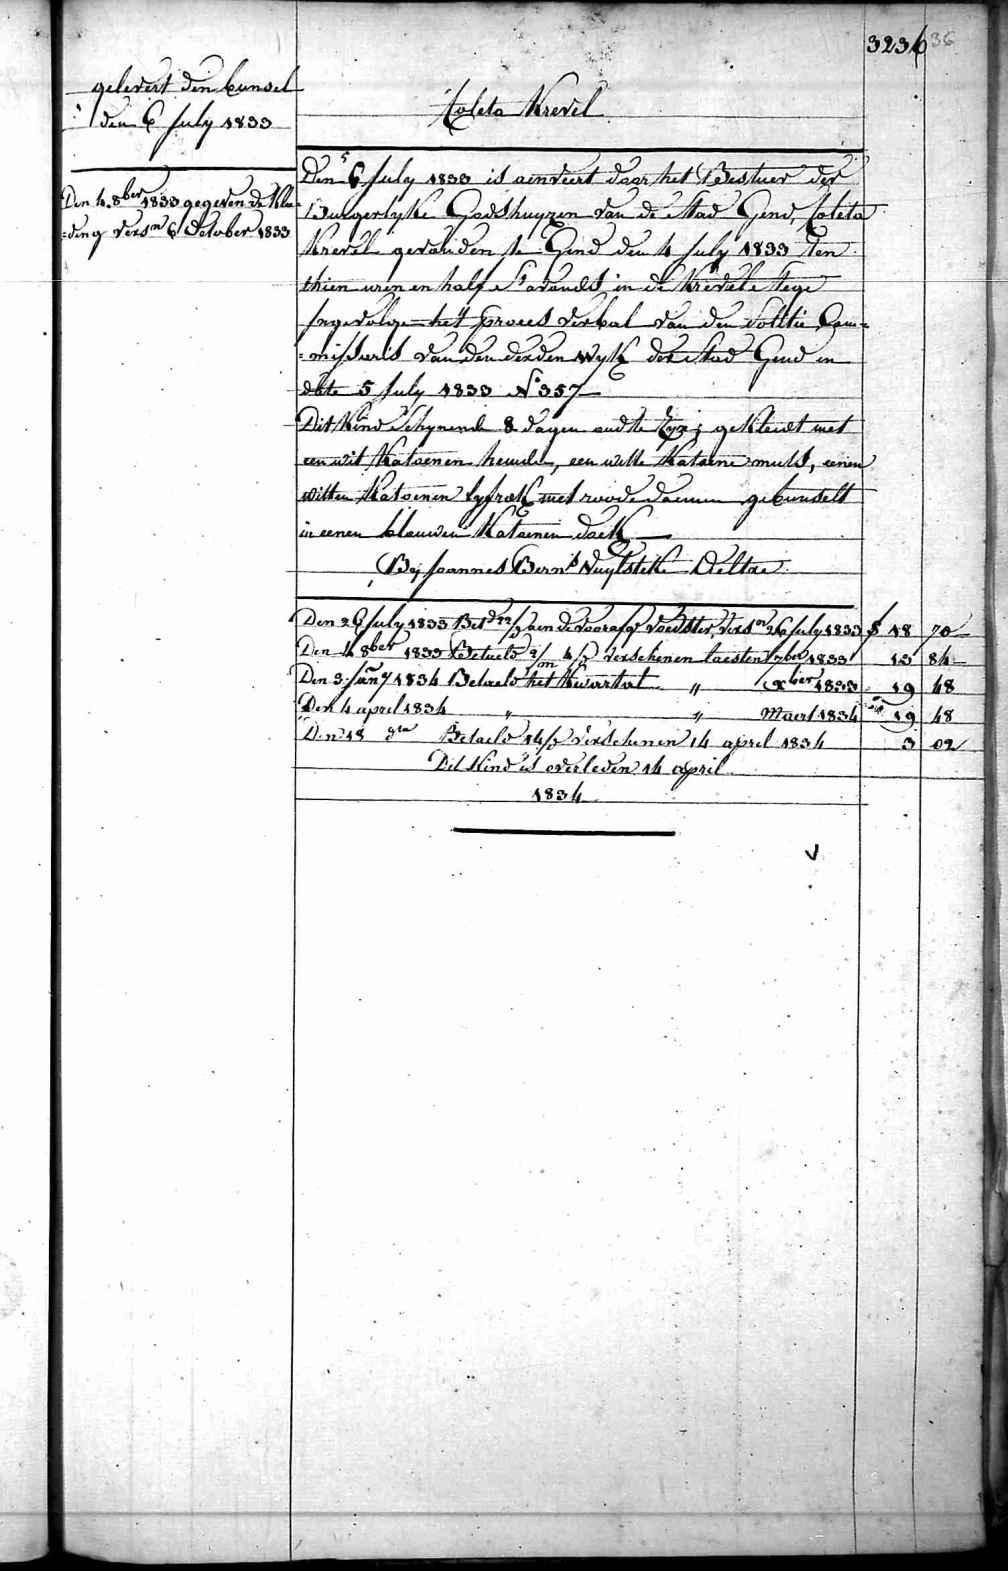 3236 36
gelevert den bunsel
den 6 July 1833
Coleta Krevel
Den 4. 8ber 1833 gegeven de klee
=ding versn 6 October 1833
Den 6 July 1833 is ainveert door het Bestuer der
Burgerlyke Godshuyzen van de Stad Gend, Coleta
Krevel gevonden te Gend den 4 July 1833 ten
thien uren en half s'avonds in de Krevele Stege
ingevolge het proces verbael van den Politie Com=
=missaris van den derden wyk der Stad Gend in
date 5 July 1833 N° 357
Dit Kind schynende 8 dagen oud te zyn; gekleedt met
een wit Katoenen hemde, een witte Katoene muts, eenen
witten Katoenen lyfrok met roode gebunselt
in eenen blauwen Katoenen doek
By Joannes Bernd Vuylsteke Deltae
Den 26 July 1833 Betd aen de voorafg voedster, versn 26 July 1833 18 70
Den 4 8ber 1833 Betaeld 2/m 4/ verschenen laesten 7ber 1833 13 84
Den 3 Jany 1834 Betaeld het Kwartael " Xber 1833 19 48
Den 4 april 1834 " " Maert 1834 19 48
Den 18 dto Betaeld 14/ verschenen 14 april 1834 3 02
Dit Kind is overleden 14 april
1834